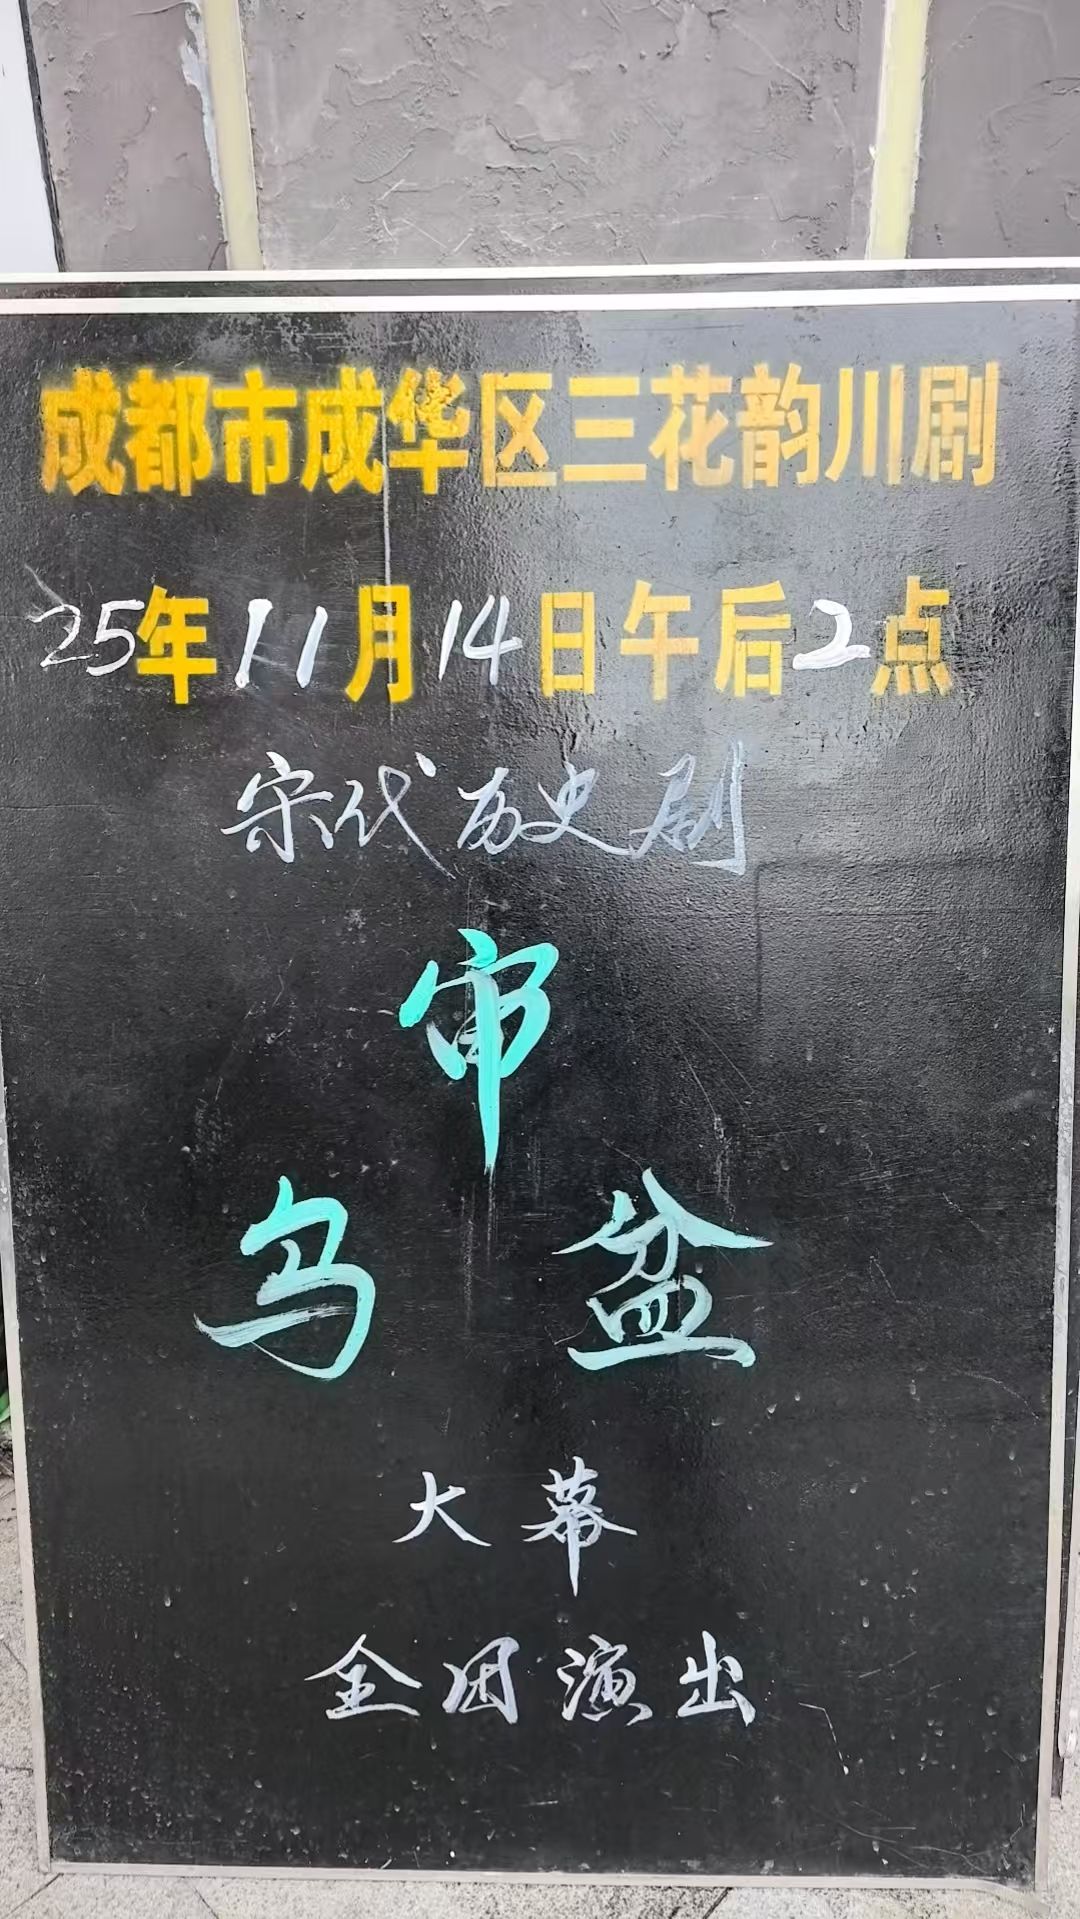 成都市成华区三花韵川剧
25年11月14日午后2点
宋代历史剧
审
乌盆
大幕
全团演出